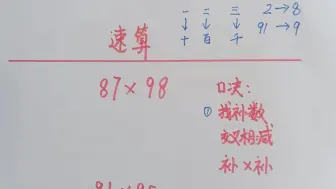 一 二 三 2→8
↓ ↓ ↓
十 百 千 91→9
速算
87×98 口决:
①找补数
交叉相减
补×补